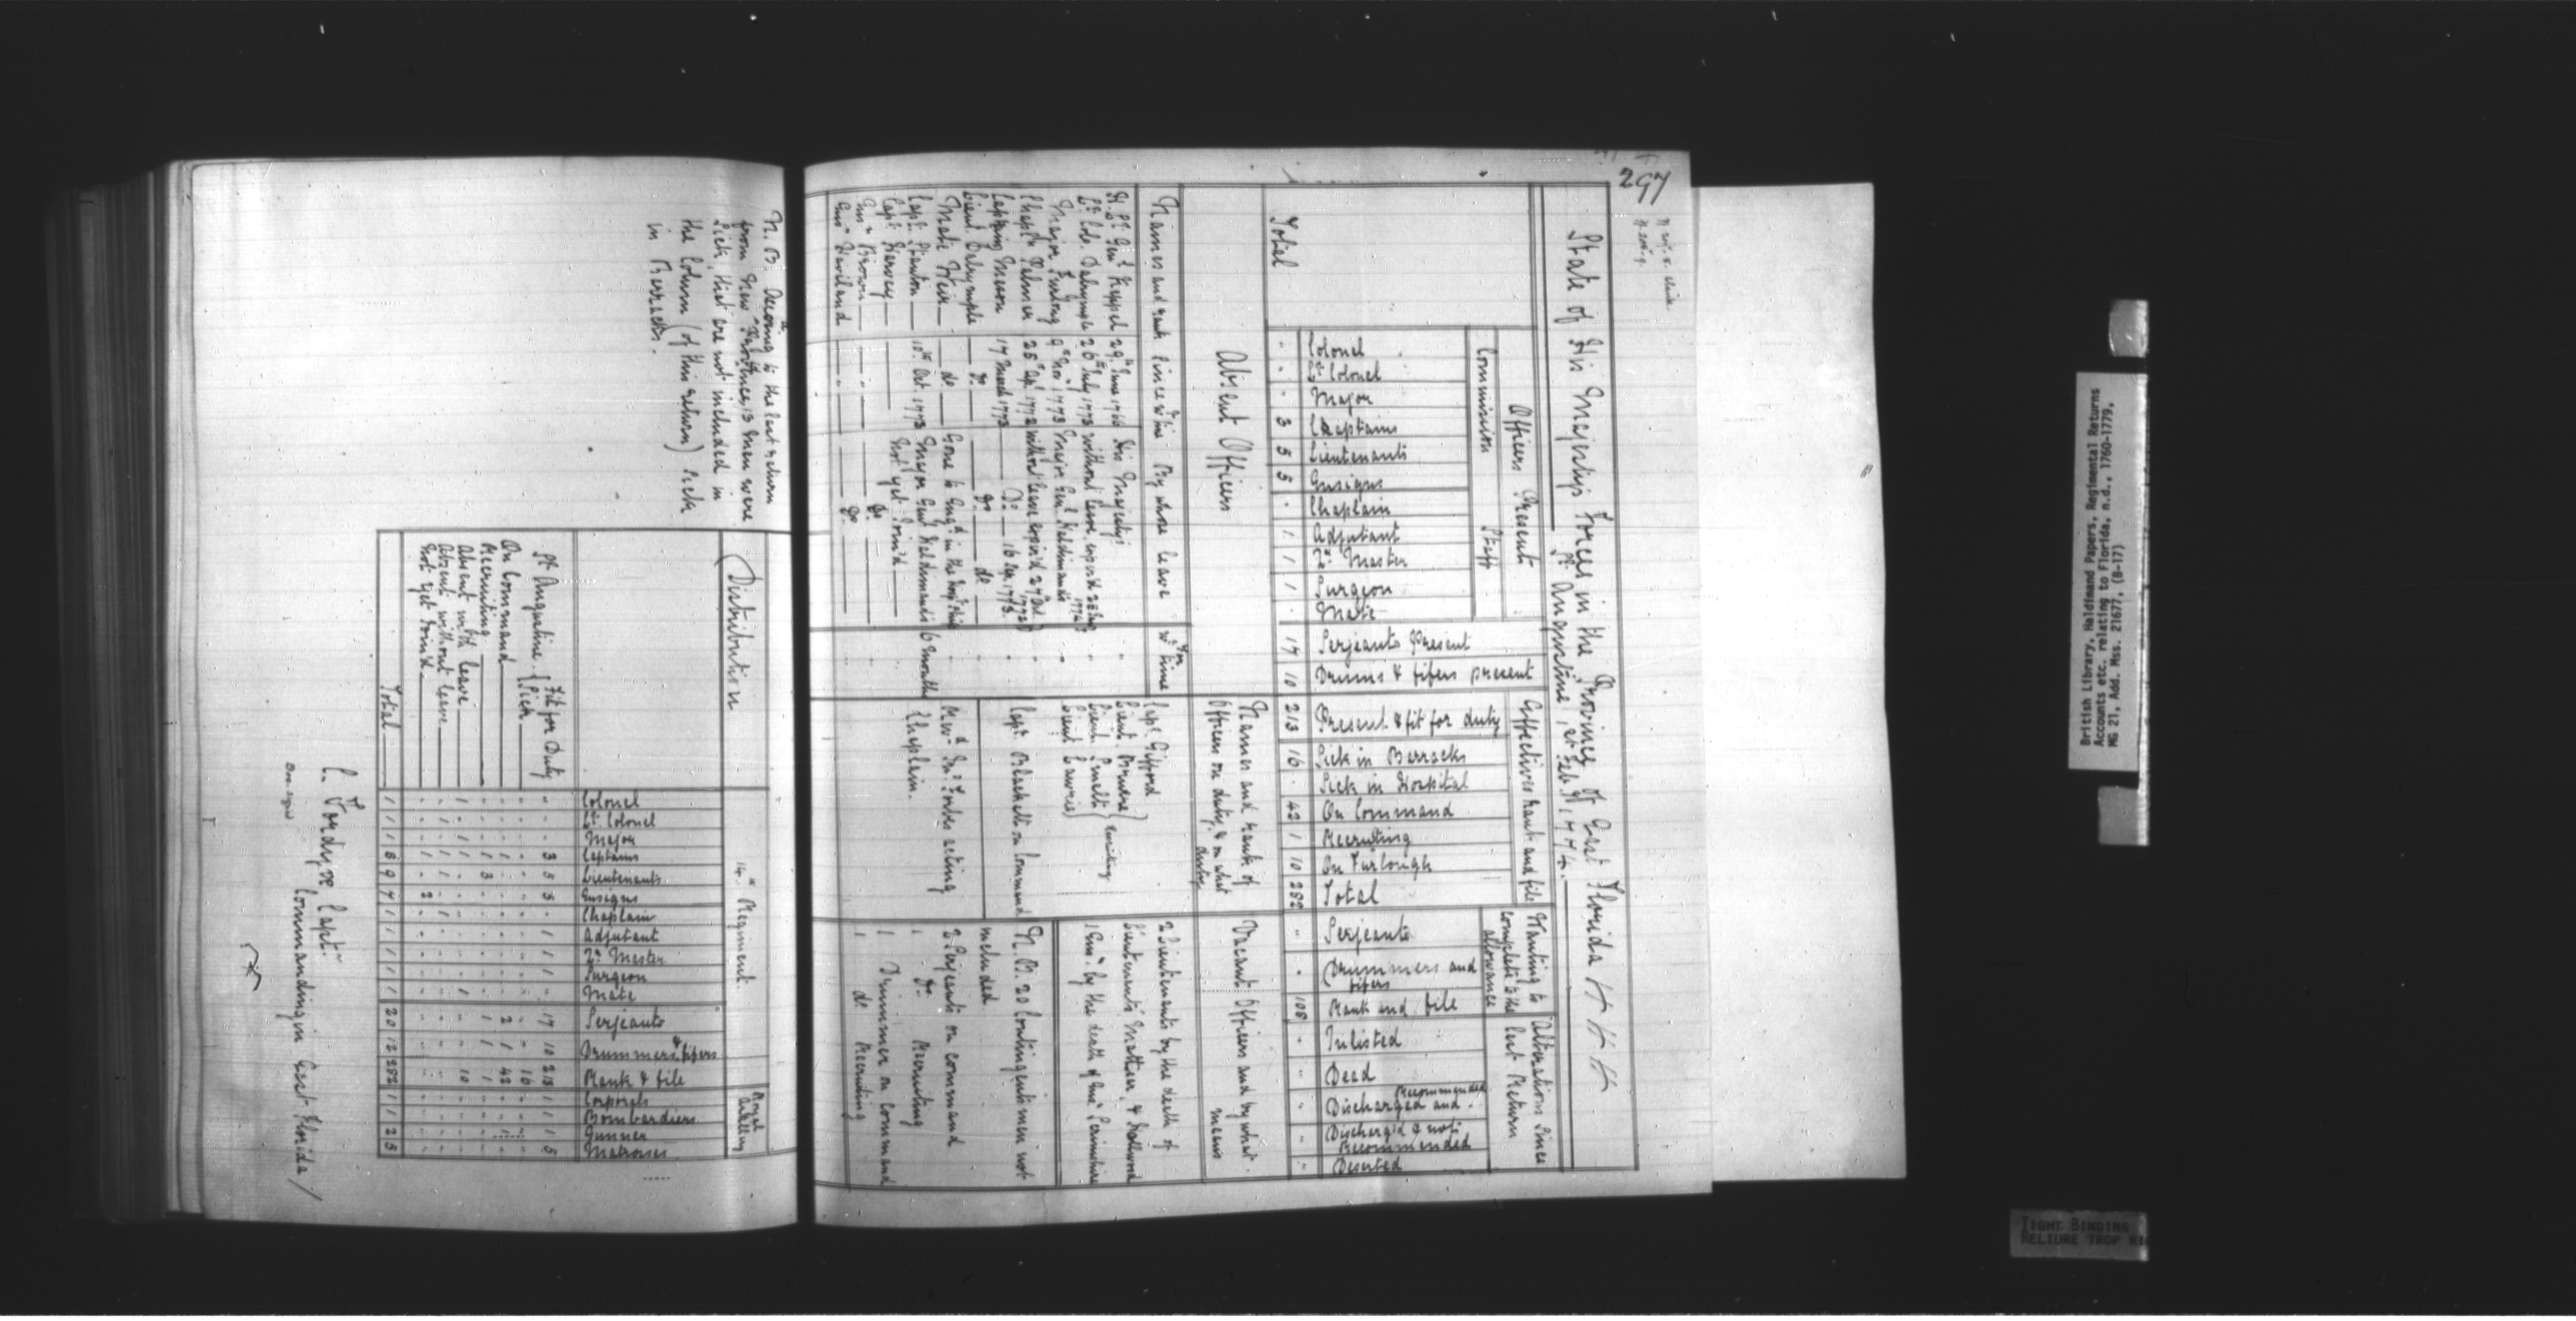 297
State of His Majestys Forces in the Province of East Florida
St. Augustine, 1st Feb. 1774.
Officers Present
Commission
Staff
Effectives Rank and file
Wanting to complete to the allowance
Alterations since last Return
Colonel
Lt. Colonel
Major
Captains
Lieutenants
Ensigns
Chaplain
Adjutant
Qr. Master
Surgeon
Mate
Serjeants Present
Drums & fifers present
Present & fit for duty
Sick in Barracks
Sick in Hospital
On Command
Recruiting
On Furlough
Total
Serjeants
Drummers and fifers
Rank and file
Inlisted
Dead
Discharged and Recommended
Discharg'd & not Recommended
Deserted
Total " " " 3 5 5 . 1 1 1 . 17 10 213 16 . 42 1 10 282 " " 108 " " " " "
Absent Officers
Names and rank of Officers on duty & on what duty
Vacant Officers and by what means
Names and rank Since wt. time By whose leave For wt. time
Lt. Genl. Keppel 29th June 1766 His Majesty's
Lt. Colo. Dalrymple 26th July 1773 without leave, expir'd
Major Furlong 9th Nov. 1773 Major Genl. Haldimand's
Chapln. Palmer 25th Ap. 1772 without leave expir'd 27 Oct. 1772
Capt. Mason 17 March 1773 Do. 16 Sep. 1773.
Lieut. Dalrymple do. do. do.
Mate Weir do. Gone to Engd. in the
Capt. Stanton 10th Oct. 1773 Major Genl. Haldimand's 6 months
Capt. Hervey Not yet Join'd
Ensn. Brown do.
Ensn. Haviland do.
Capt. Gifford
Lieut. Bruere
Lieut. Smelt
Lieut. Lawrie
Recruiting
Capt. Blackett on Command
Revd. Jno. Forbes acting
Chaplain.
2 Lieutenants by the death of
Lieutenants Mattear, &
1 Ensn. by the death of Ensn.
N. B. 20 Contingent men not
included
2 Serjeants on command
1 do. Recruiting
1 Drummer on Command
1 do. Recruiting
N. B. Accordg. to the last return
from New Providence, 13 men were
sick, that are not included in
the Column (of this return) sick
in Barracks.
Distribution
14th Regiment
Royal Artillery
Colonel
Lt. Colonel
Major
Captains
Lieutenants
Ensigns
Chaplain
Adjutant
Qr. Master
Surgeon
Mate
Serjeants
Drummers & fifers
Rank & file
Corporals
Bombardiers
Gunner
Matrosses
St. Augustine { Fit for Duty " " " 3 5 5 " 1 1 1 " 17 10 213 1 1 1 5
Sick 16
On Command 1 2 1 42
Recruiting 1 3 1 1 1
Absent with leave 1 1 1 1 10
Absent without leave 1 1 1 1
Not yet Join'd 1 2
Total 1 1 1 8 9 7 1 1 1 1 1 20 12 282 1 1 2 5
C. Fordyce Capt.
Commanding in East Florida
British Library, Haldimand Papers, Regimental Returns
Accounts etc. relating to Florida, n.d., 1760-1779,
MG 21, Add. Mss. 21677, (B-17)
TIGHT BINDING
RELIURE TROP